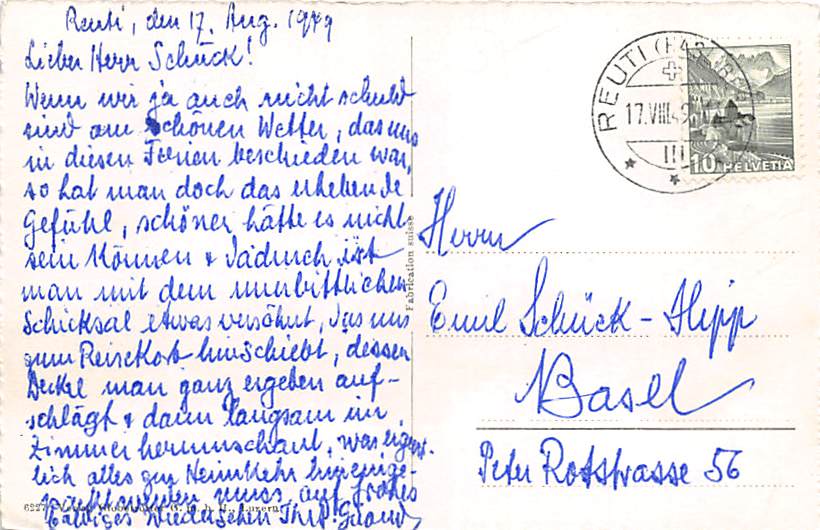 Reuti, den 17. Aug. 1949
Lieber Herr Schück!
Wenn wir ja auch nicht schuld
sind am schönen Wetter, das uns
in diesen Ferien beschieden war,
so hat man doch das erhebende
Gefühl, schöner hätte es nicht
sein können & dadurch ist
man mit dem unerbittlichen
Schicksal etwas versöhnt, das uns
zum Reisekorb hinschiebt, dessen
Deckel man ganz ergeben auf-
schlägt & dann langsam im
Zimmer herumschaut, was eigent-
lich alles zur Heimkehr hineinge-
muss, auf frohes
baldiges Wiedersehen Ihr
6227 Luzern
Fabrication suisse
REUTI (HASLIBERG)
17.VIII.49
III
10 HELVETIA
Herrn
Emil Schück-Hipp
Basel
Peter Rotstrasse 56